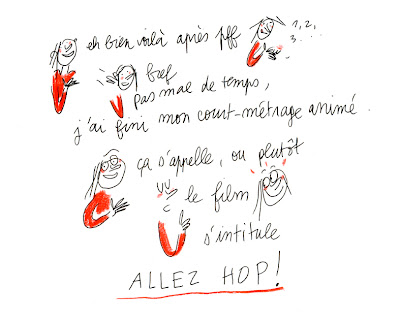 eh bien voilà après pff 1, 2,
3...
bref
pas mal de temps,
j'ai fini mon court-métrage animé.
ça s'appelle, ou plutôt
le film
s'intitule
ALLEZ HOP!